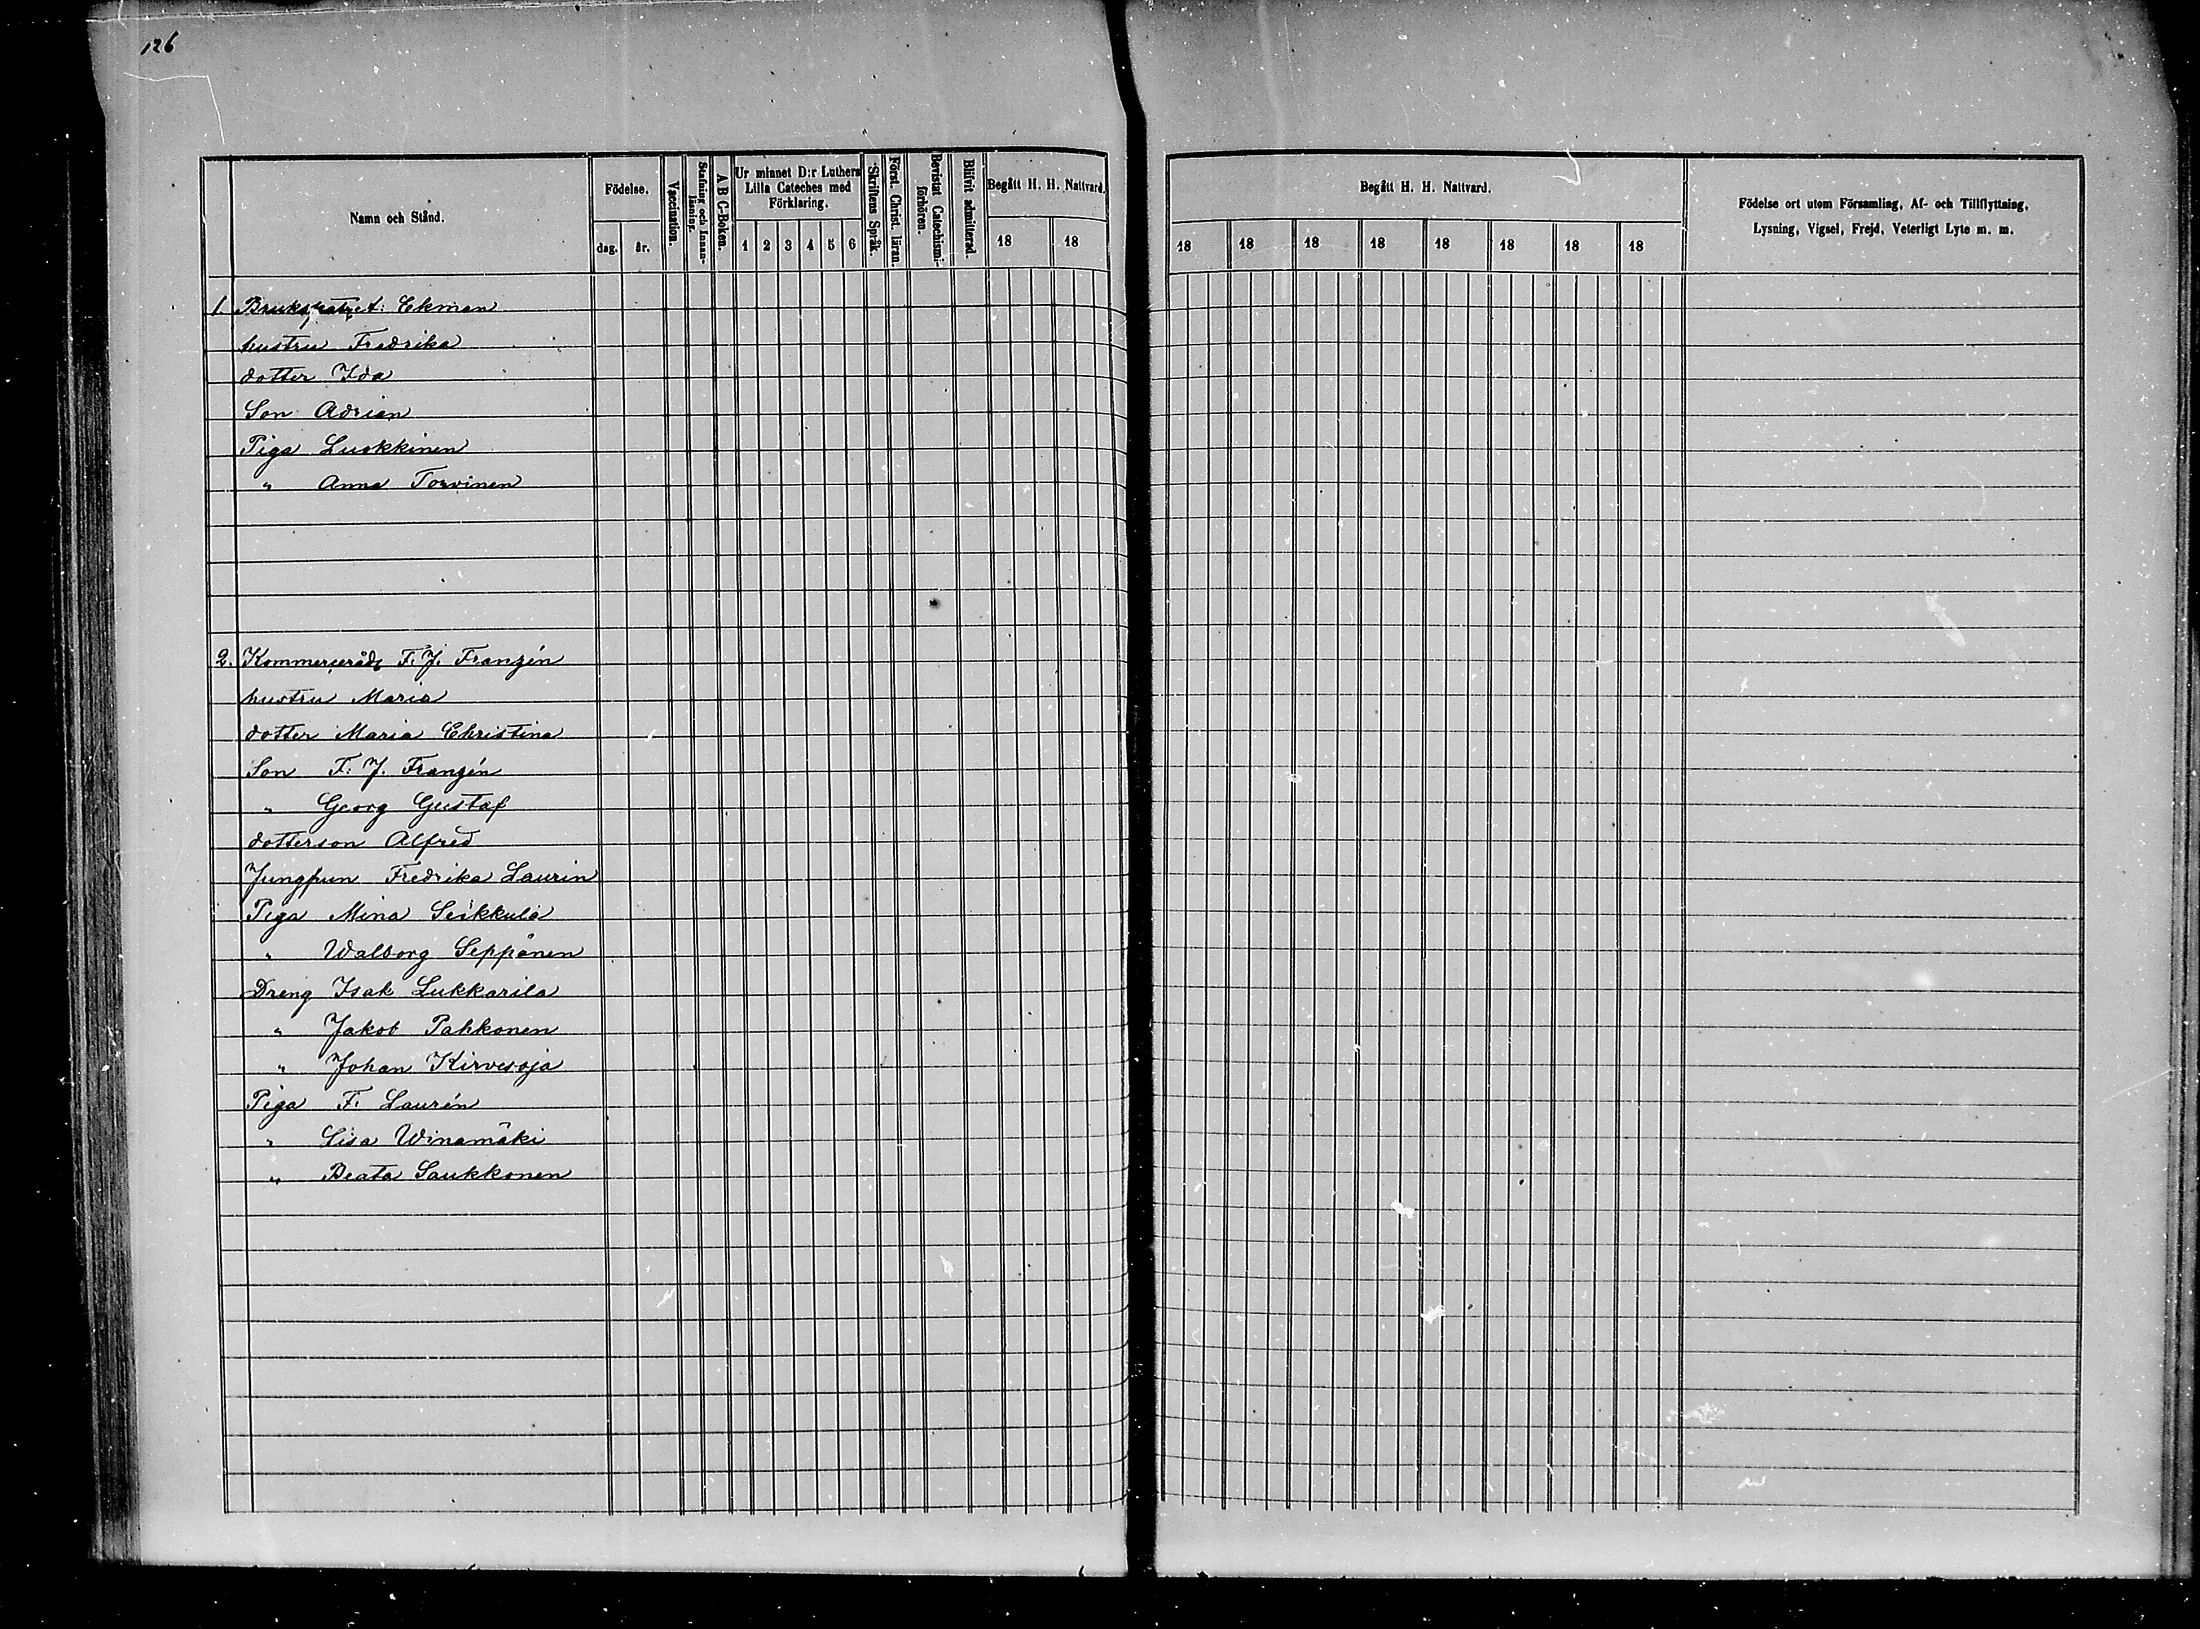 126
Namn och Stånd.
Födelse.
dag.
år.
Vaccination.
Stafning och Innan-
läsning.
A B C-Boken.
Ur minnet D:r Luthers
Lilla Cateches med
Förklaring.
1 2 3 4 5 6
Skriftens Språk.
Först. Christ. läran.
Bevistat Catechismi-
förhören.
Blifvit admitterad.
Begått H. H. Nattvard.
18 18
Begått H. H. Nattvard.
18 18 18 18 18 18 18 18
Födelse ort utom Församling, Af- och Tillflyttning,
Lysning, Vigsel, Frejd, Veterligt Lyte m. m.
1. Ekman
hustru Fredrika
dotter Ida
Son Adrian
Piga Luokkinen
" Anna Torvinen
2. Kommerseråd F. J. Franzén
hustru Maria
dotter Maria Christina
Son F. J. Franzén
" Georg Gustaf
dotterson Alfred
Jungfrun Fredrika Laurin
Piga Mina Seikkula
" Walborg Seppänen
Dreng Isak Lukkarila
" Jakob Pahkonen
" Johan Kirvesoja
Piga F. Laurén
" Lisa Winamäki
" Beata Saukkonen